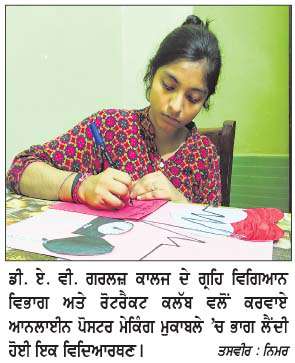 ਡੀ. ਏ. ਵੀ. ਗਰਲਜ਼ ਕਾਲਜ ਦੇ ਗ੍ਰਹਿ ਵਿਗਿਆਨ
ਵਿਭਾਗ ਅਤੇ ਰੋਟਰੈਕਟ ਕਲੱਬ ਵਲੋਂ ਕਰਵਾਏ
ਆਨਲਾਈਨ ਪੋਸਟਰ ਮੇਕਿੰਗ ਮੁਕਾਬਲੇ 'ਚ ਭਾਗ ਲੈਂਦੀ
ਹੋਈ ਇਕ ਵਿਦਿਆਰਥਣ। ਤਸਵੀਰ : ਨਿਮਰ